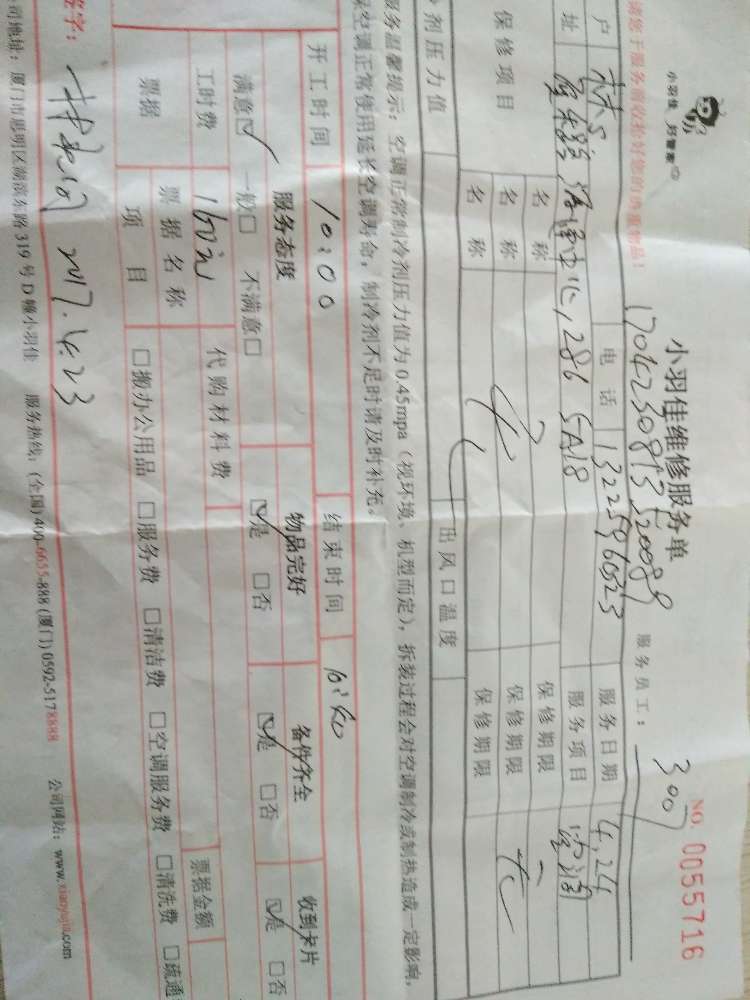 小羽佳 好管家
小羽佳维修服务单
NO. 0055716
17042308135200899
服务员工： 307
请您于服务前收拾好您的贵重物品！
户 林S 电话 13225960523 服务日期 4.24
址 286 5A18 服务项目 空调
保修项目 名称 保修期限
名称 无 保修期限 无
名称 保修期限
剂压力值 出风口温度
服务温馨提示：空调正常制冷剂压力值为0.45mpa（视环境、机型而定），拆装过程会对空调制冷或制热造成一定影响，
保空调正常使用延长空调寿命，制冷剂不足时请及时补充。
开工时间 10:00 结束时间 10:40
服务态度 物品完好 备件齐全 收到卡片
满意☑ 一般□ 不满意□ ☑是 □否 ☑是 □否 ☑是 □否
工时费 160元 代购材料费 票据金额
票据 票据名称
项目 □搬办公用品 □服务费 □清洁费 □空调服务费 □清洗费 □疏通
签字： 2017.4.23
司地址：厦门市思明区湖滨东路319号D幢小羽佳 服务热线：（全国）400-6655-888（厦门）0592-5178888 公司网站：www.xiaoyujia.com